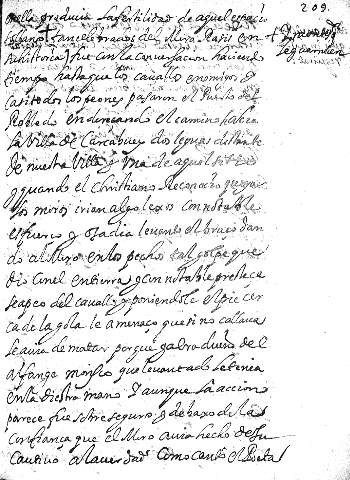 209.
nella producia la fertilidad de aquel espacio
y uno + tan celebrado del Moro Rasis en su
historia) fue con la conversacion haciendo
tiempo hasta que los cavallos enemigos y
casi todos los peones pasaron el Puerto del
Robledo enderecando el camino hacia
la villa de Carcabuey dos leguas distante
de nuestra Villa y una de aquel sitio
y quando el Christiano reconocio que ya
los moros irian algo lexos con notable
esfuerco y osadia levanto el braco dan
do al Moro en los pechos tal golpe que
dio con el en tierra y con notable presteca
se apeo del cavallo y poniendole el pie cer
ca de la gola le amenaco que si no callava
le avia de matar porque ya era dueño del
alfange morisco que levantado le tenia
en la diestra mano. Y aunque la accion
parece fue sobre seguro y debaxo de la
confianca que el Moro avia hecho de su
cautivo a la verdad como canto el Poeta